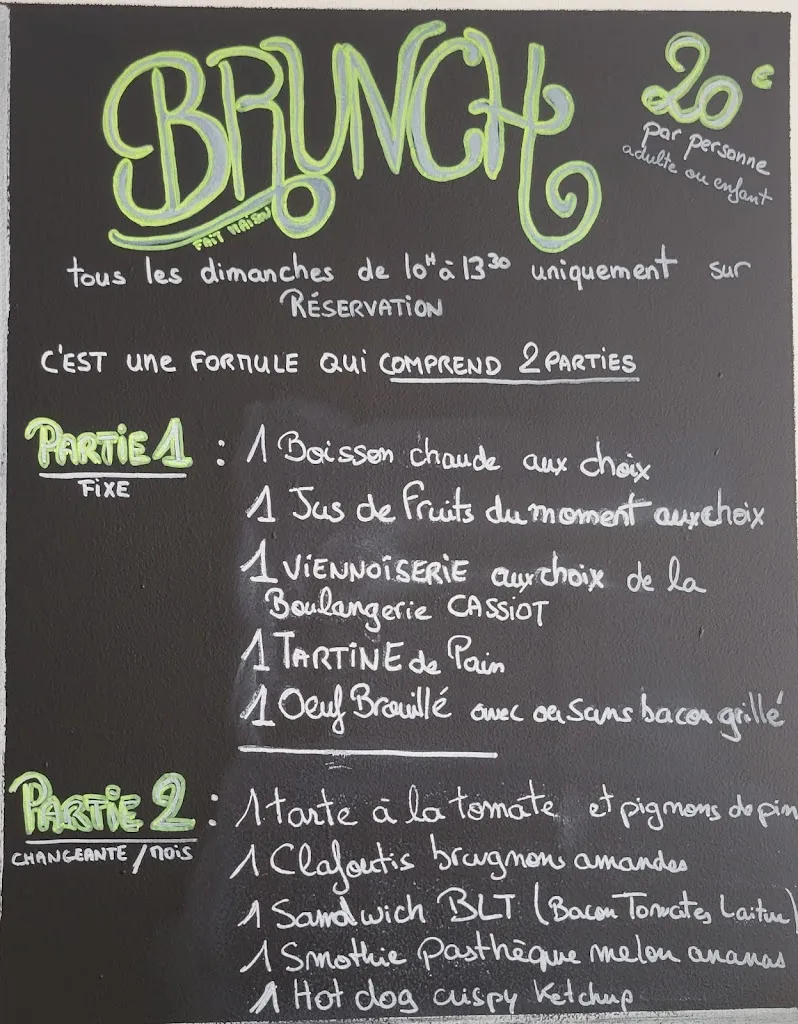 BRUNCH
FAIT MAISON
20€
par personne
adulte ou enfant
tous les dimanches de 10H à 13 30 uniquement sur
RÉSERVATION
C'EST une FORMULE QUI COMPREND 2 PARTIES
PARTIE 1 : 1 Boisson chaude aux choix
FIXE
1 Jus de fruits du moment aux choix
1 VIENNOISERIE aux choix de la
Boulangerie CASSIOT
1 TARTINE de Pain
1 Oeuf Brouillé avec ou sans bacon grillé
PARTIE 2 : 1 tarte à la tomate et pignons de pin
CHANGEANTE / MOIS
1 Clafoutis brugnons amandes
1 Sandwich BLT (Bacon Tomates Laitue)
1 Smothie Pasthèque melon ananas
1 Hot dog crispy Ketchup